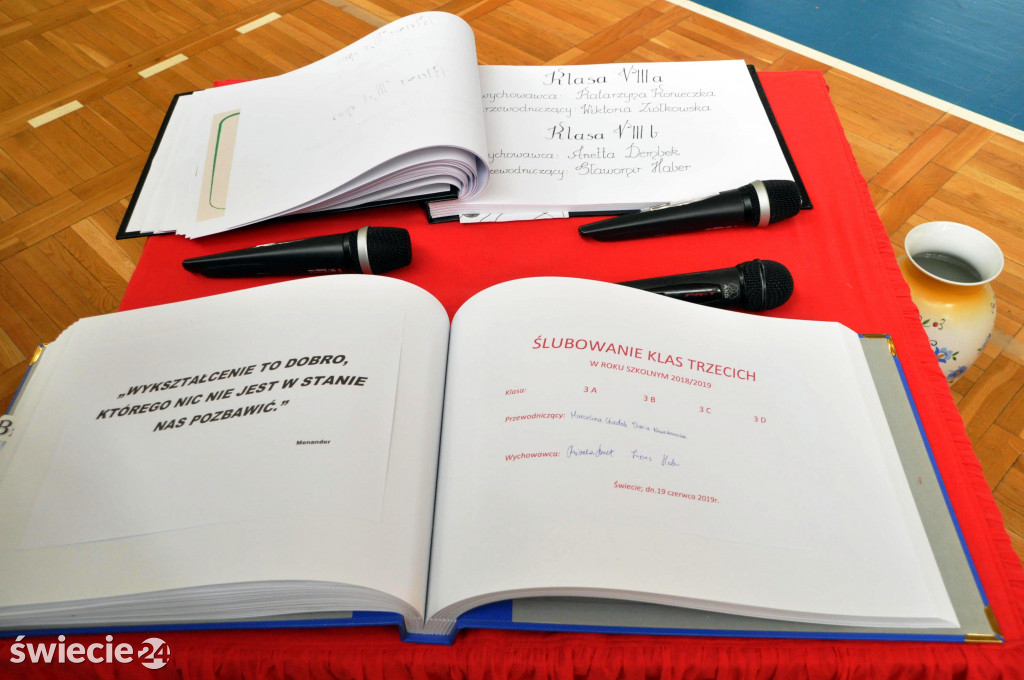 Klasa VIII a
wychowawca: Katarzyna Konieczka
przewodniczący: Wiktoria Ziółkowska
Klasa VIII b
wychowawca: Anetta Dembek
przewodniczący: Sławomir Haber
„WYKSZTAŁCENIE TO DOBRO,
KTÓREGO NIC NIE JEST W STANIE
NAS POZBAWIĆ.”
Menander
ŚLUBOWANIE KLAS TRZECICH
W ROKU SZKOLNYM 2018/2019
Klasa: 3 A 3 B 3 C 3 D
Przewodniczący:
Wychowawca:
Świecie; dn.19 czerwca 2019r.
świecie24